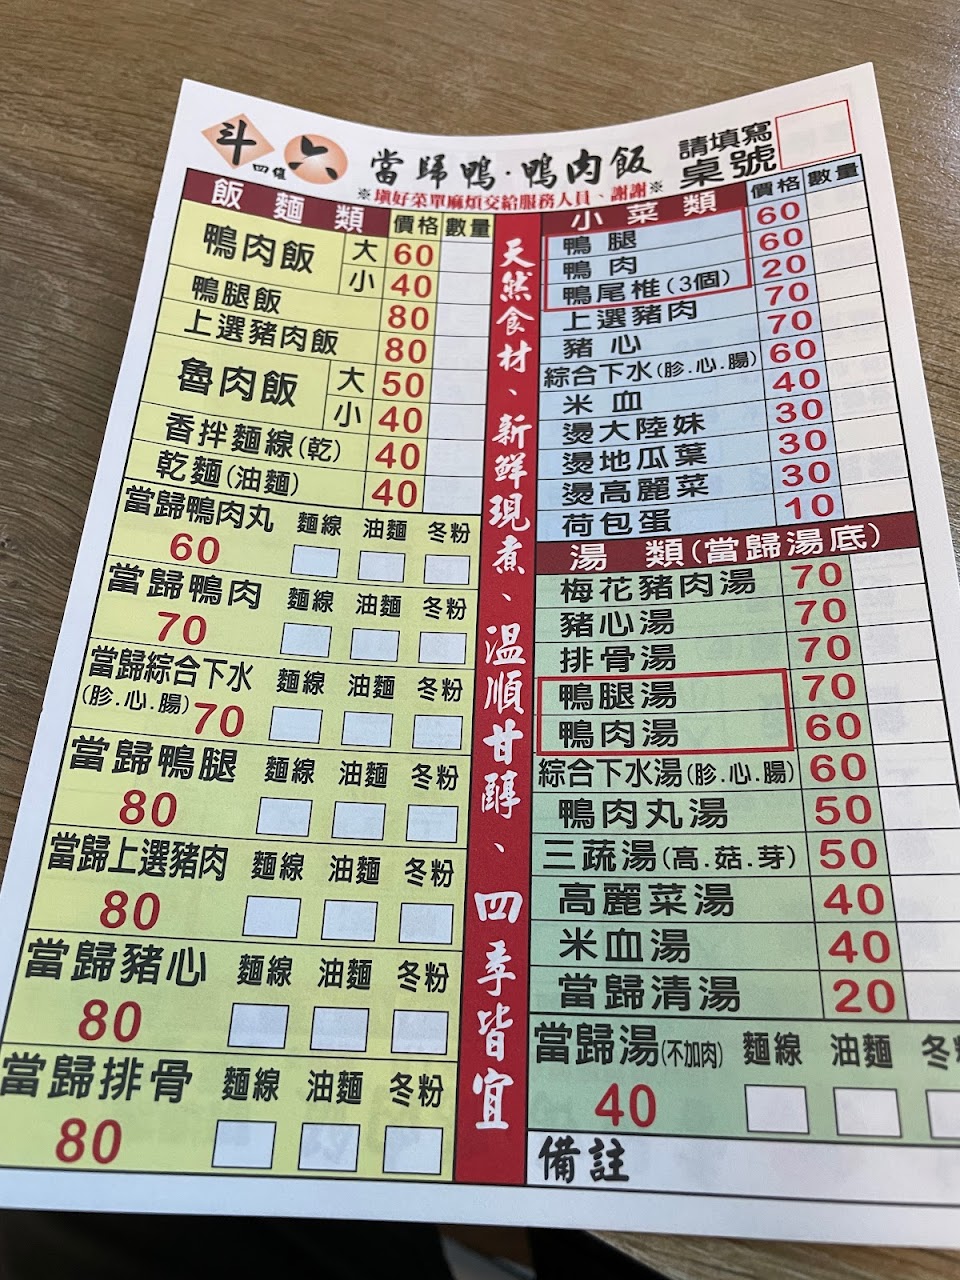 斗六
四維
當歸鴨·鴨肉飯
請填寫
桌號
※填好菜單麻煩交給服務人員、謝謝※
飯麵類 價格 數量
鴨肉飯 大 60
小 40
鴨腿飯 80
上選豬肉飯 80
魯肉飯 大 50
小 40
香拌麵線(乾) 40
乾麵(油麵) 40
當歸鴨肉丸 麵線 油麵 冬粉
60
當歸鴨肉 麵線 油麵 冬粉
70
當歸綜合下水 麵線 油麵 冬粉
(胗.心.腸) 70
當歸鴨腿 麵線 油麵 冬粉
80
當歸上選豬肉 麵線 油麵 冬粉
80
當歸豬心 麵線 油麵 冬粉
80
當歸排骨 麵線 油麵 冬粉
80
天然食材、新鮮現煮、溫順甘醇、四季皆宜
小菜類 價格 數量
鴨腿 60
鴨肉 60
鴨尾椎(3個) 20
上選豬肉 70
豬心 70
綜合下水(胗.心.腸) 60
米血 40
燙大陸妹 30
燙地瓜葉 30
燙高麗菜 30
荷包蛋 10
湯類(當歸湯底)
梅花豬肉湯 70
豬心湯 70
排骨湯 70
鴨腿湯 70
鴨肉湯 60
綜合下水湯(胗.心.腸) 60
鴨肉丸湯 50
三蔬湯(高.菇.芽) 50
高麗菜湯 40
米血湯 40
當歸清湯 20
當歸湯(不加肉) 麵線 油麵 冬
40
備註